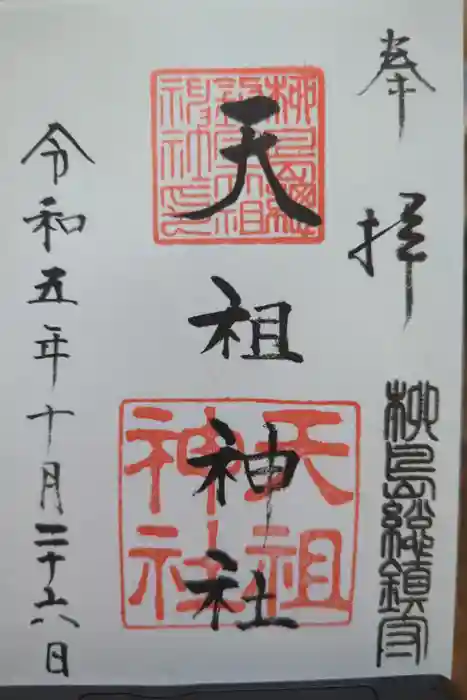 奉拝
柳島総鎮守
柳島総鎮守天祖神社印
天祖神社
天祖神社
令和五年十月二十六日